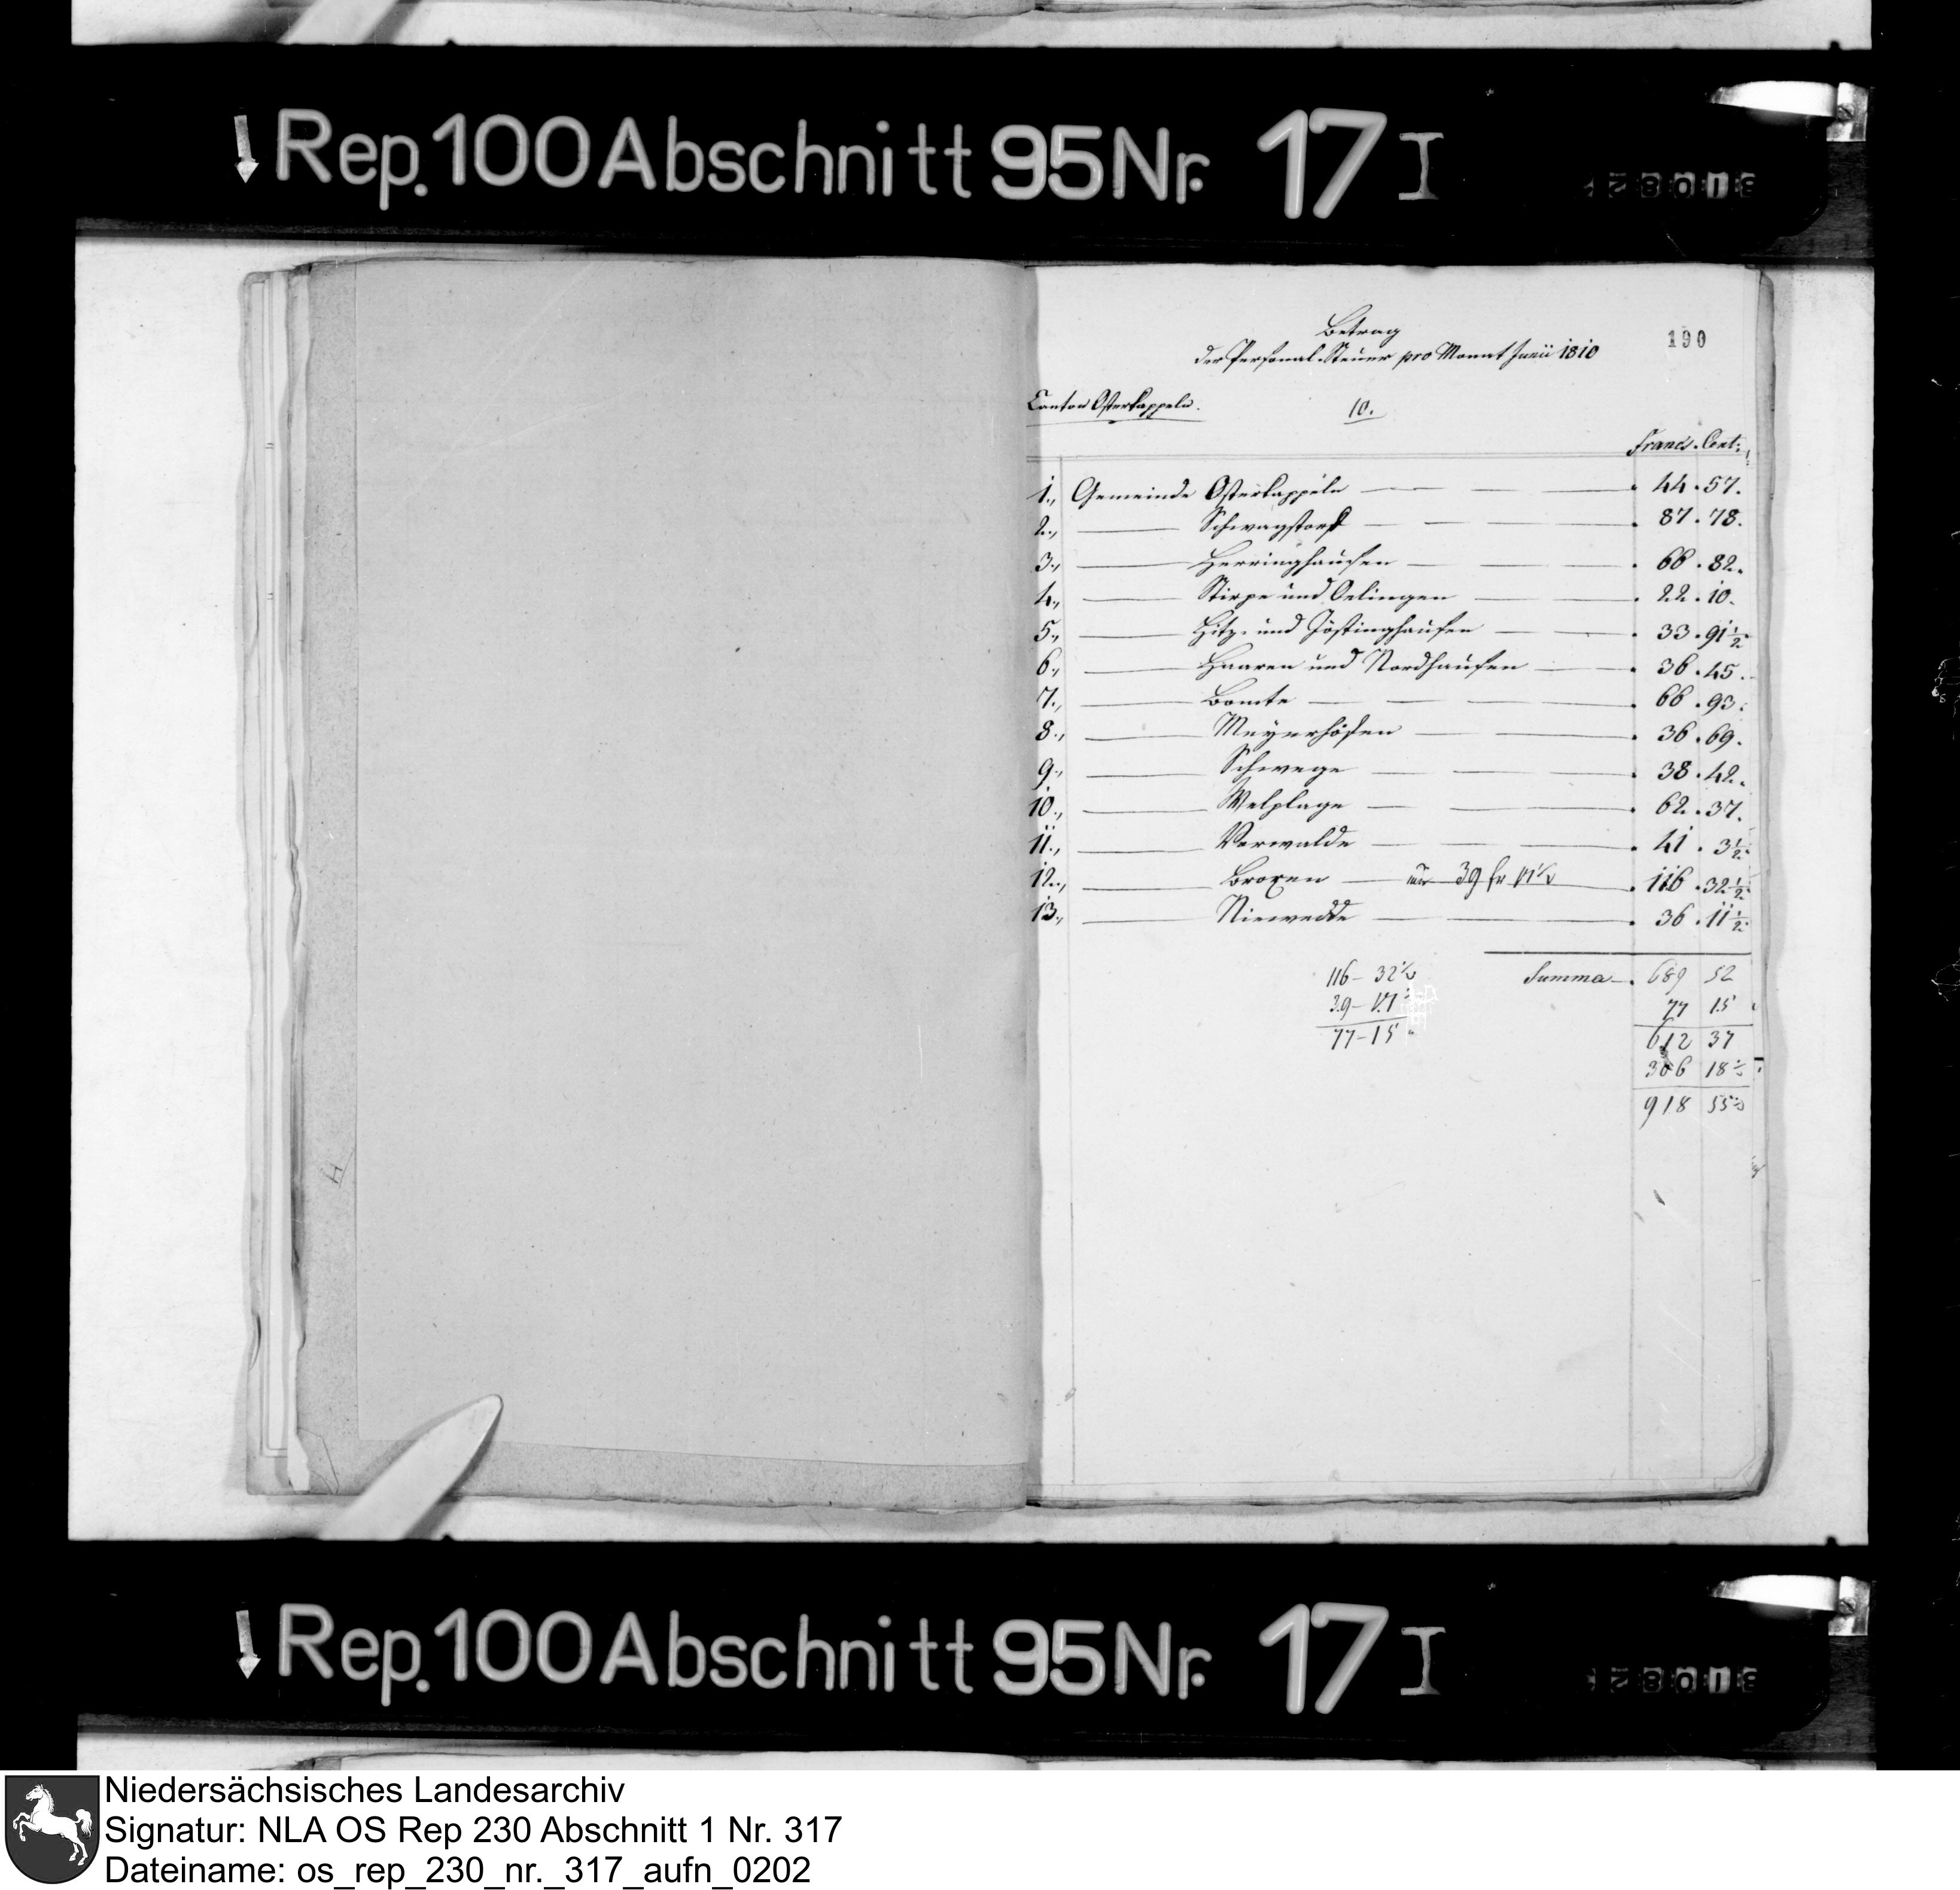 Rep. 100 Abschnitt 95 Nr. 17 I
190
Betrag
der Personal-Steuer pro Monat Junii 1810
Canton Osterkappeln.
10.
Francs. Cent:
1., Gemeinde Osterkappeln 44. 57.
2., Schwagstorf 87. 78.
3., Herringhausen 66. 82.
4., Stirpe und Oelingen 22. 10.
5., Hitz- und Jöstinghausen 33. 91 1/2
6., Haaren und Nordhausen 36. 45.
7., Bomte 66. 93.
8., Meyerhöfen 36. 69.
9., Schwege 38. 42.
10., Welplage 62. 37.
11., Vorwalde 41. 3 1/2
12., Broxen 39 fr 17 1/2 116. 32 1/2
13., Niewedde 36. 11 1/2
Summa 689 52
77 15
612 37
306 18 1/2
918 55 1/2
116 - 32 1/2
39 - 17 1/2
77 - 15
Rep. 100 Abschnitt 95 Nr. 17 I
Niedersächsisches Landesarchiv
Signatur: NLA OS Rep 230 Abschnitt 1 Nr. 317
Dateiname: os_rep_230_nr._317_aufn_0202